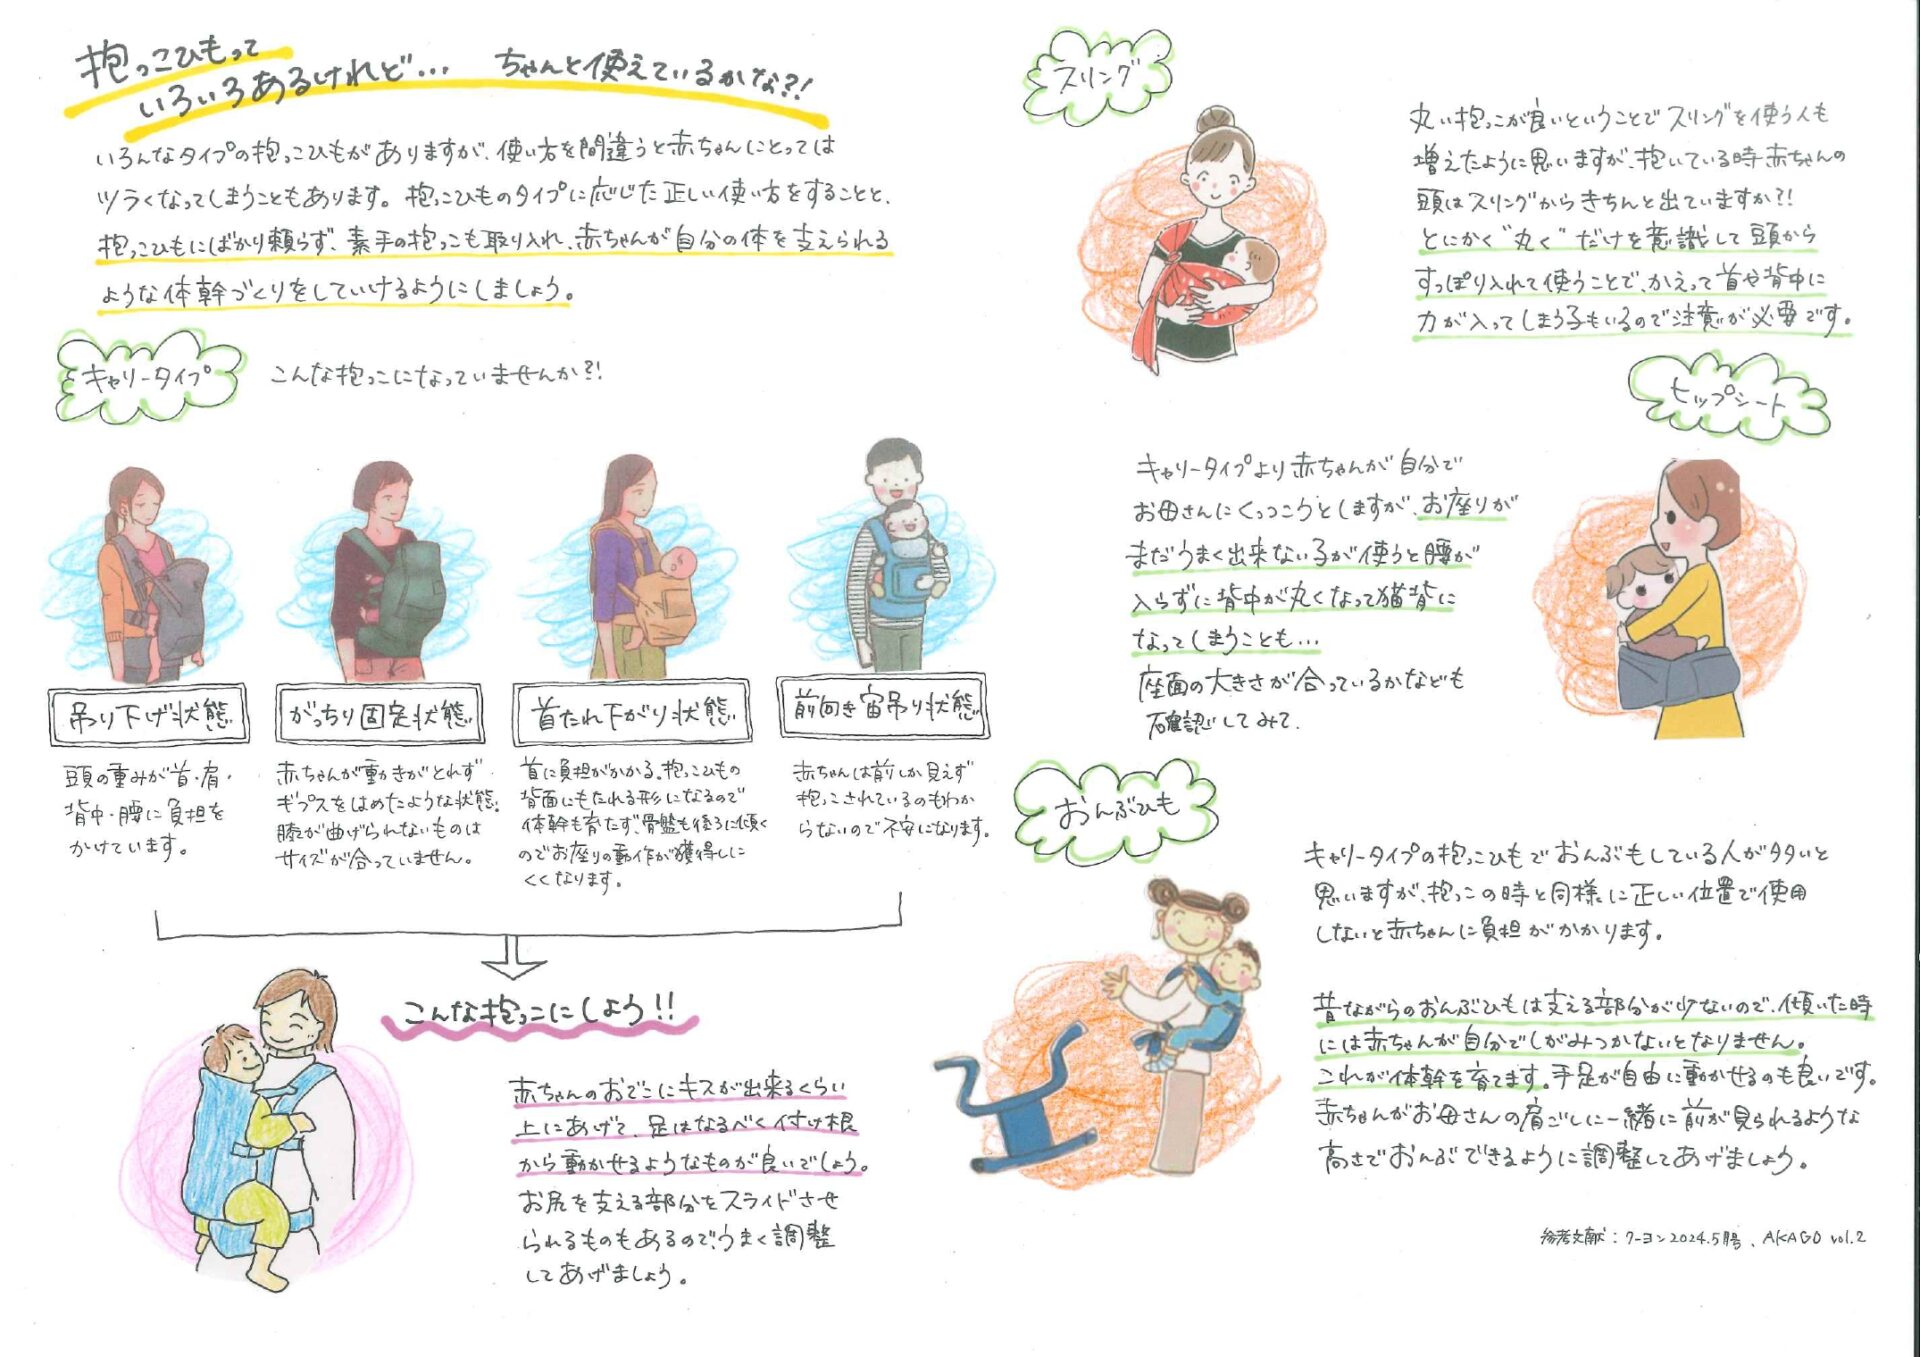 抱っこひもって
いろいろあるけれど… ちゃんと使えているかな?!
いろんなタイプの抱っこひもがありますが、使い方を間違うと赤ちゃんにとっては
ツラくなってしまうこともあります。抱っこひものタイプに応じた正しい使い方をすることと、
抱っこひもにばかり頼らず、素手の抱っこも取り入れ、赤ちゃんが自分の体を支えられる
ような体幹づくりをしていけるようにしましょう。
キャリータイプ
こんな抱っこになっていませんか?!
吊り下げ状態
頭の重みが首・肩・
背中・腰に負担を
かけています。
がっちり固定状態
赤ちゃんが動きがとれず
ギプスをはめたような状態。
膝が曲げられないものは
サイズが合っていません。
首たれ下がり状態
首に負担がかかる。抱っこひもの
背面にもたれる形になるので
体幹も育たず、骨盤も後ろに傾く
のでお座りの動作が獲得しに
くくなります。
前向き宙吊り状態
赤ちゃんは前しか見えず
抱っこされているのもわか
らないので不安になります。
こんな抱っこにしよう!!
赤ちゃんのおでこにキスが出来るくらい
上にあげて、足はなるべく付け根
から動かせるようなものが良いでしょう。
お尻を支える部分をスライドさせ
られるものもあるので、うまく調整
してあげましょう。
スリング
丸い抱っこが良いということでスリングを使う人も
増えたように思いますが、抱いている時赤ちゃんの
頭はスリングからきちんと出ていますか?!
とにかく“丸く”だけを意識して頭から
すっぽり入れて使うことで、かえって首や背中に
力が入ってしまう子もいるので注意が必要です。
ヒップシート
キャリータイプより赤ちゃんが自分で
お母さんにくっつこうとしますが、お座りが
まだうまく出来ない子が使うと腰が
入らずに背中が丸くなって猫背に
なってしまうことも…
座面の大きさが合っているかなども
確認してみて。
おんぶひも
キャリータイプの抱っこひもでおんぶもしている人が多いと
思いますが、抱っこの時と同様に正しい位置で使用
しないと赤ちゃんに負担がかかります。
昔ながらのおんぶひもは支える部分が少ないので、傾いた時
には赤ちゃんが自分でしがみつかないとなりません。
これが体幹を育てます。手足が自由に動かせるのも良いです。
赤ちゃんがお母さんの肩ごしに一緒に前が見られるような
高さでおんぶできるように調整してあげましょう。
参考文献:クーヨン2024.5月号、AKAGO vol.2